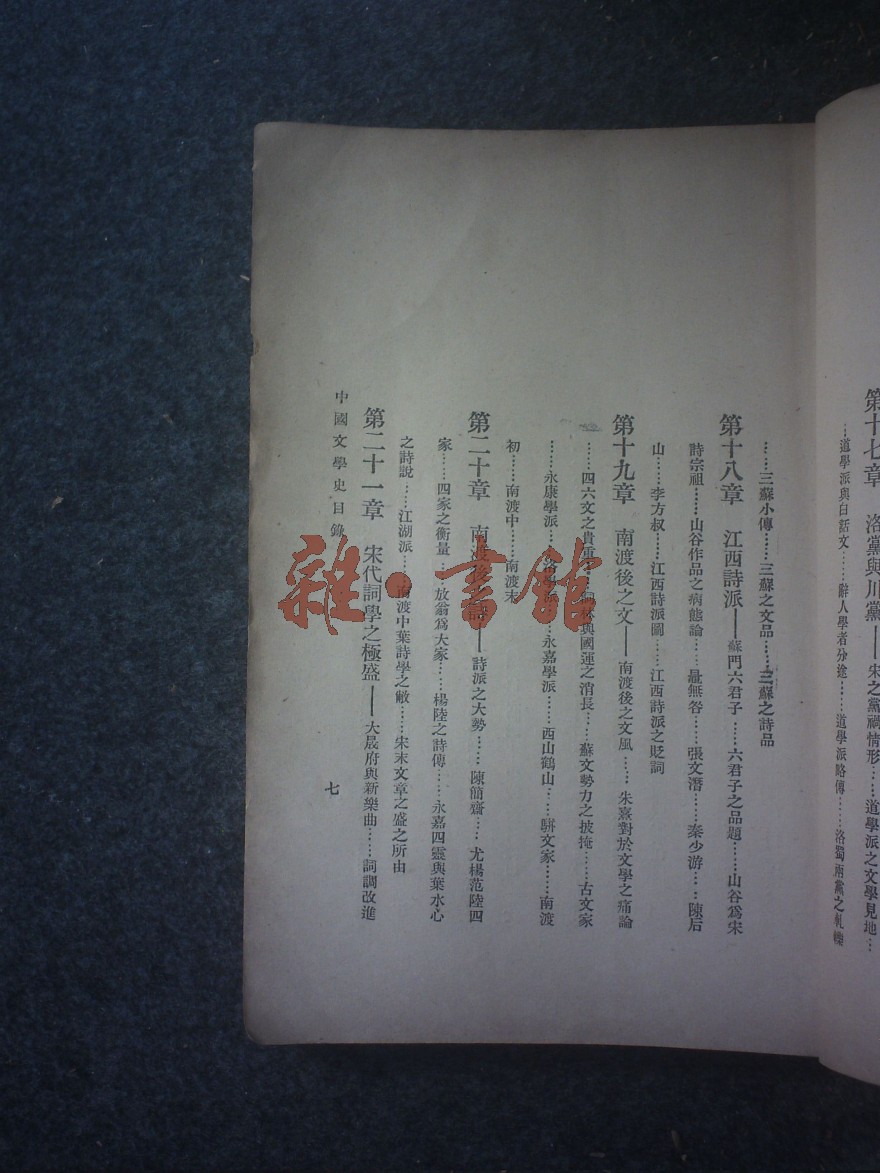 第十七章　洛黨與川黨——宋之黨禍情形……道學派之文學見地…
…道學派與白話文……辭人學者分途……道學派略傳……洛蜀兩黨之軋轢
……三蘇小傳……三蘇之文品……三蘇之詩品
第十八章　江西詩派——蘇門六君子……六君子之品題……山谷爲宋
詩宗祖……山谷作品之病態論……鼂無咎……張文潛……秦少游……陳后
山……李方叔……江西詩派圖……江西詩派之貶詞
第十九章　南渡後之文——南渡後之文風……朱熹對於文學之痛論
……四六文之貴重……與國運之消長……蘇文勢力之披掩……古文家
……永康學派……永嘉學派……西山鶴山……駢文家……南渡
初……南渡中……南渡末
第二十章　南渡後之詩——詩派之大勢……陳簡齋……尤楊范陸四
家……四家之衡量……放翁爲大家……楊陸之詩傳……永嘉四靈與葉水心
之詩說……江湖派……南渡中葉詩學之敝……宋末文章之盛之所由
第二十一章　宋代詞學之極盛——大晟府與新樂曲……詞調改進
中國文學史目錄
七
雜·書館